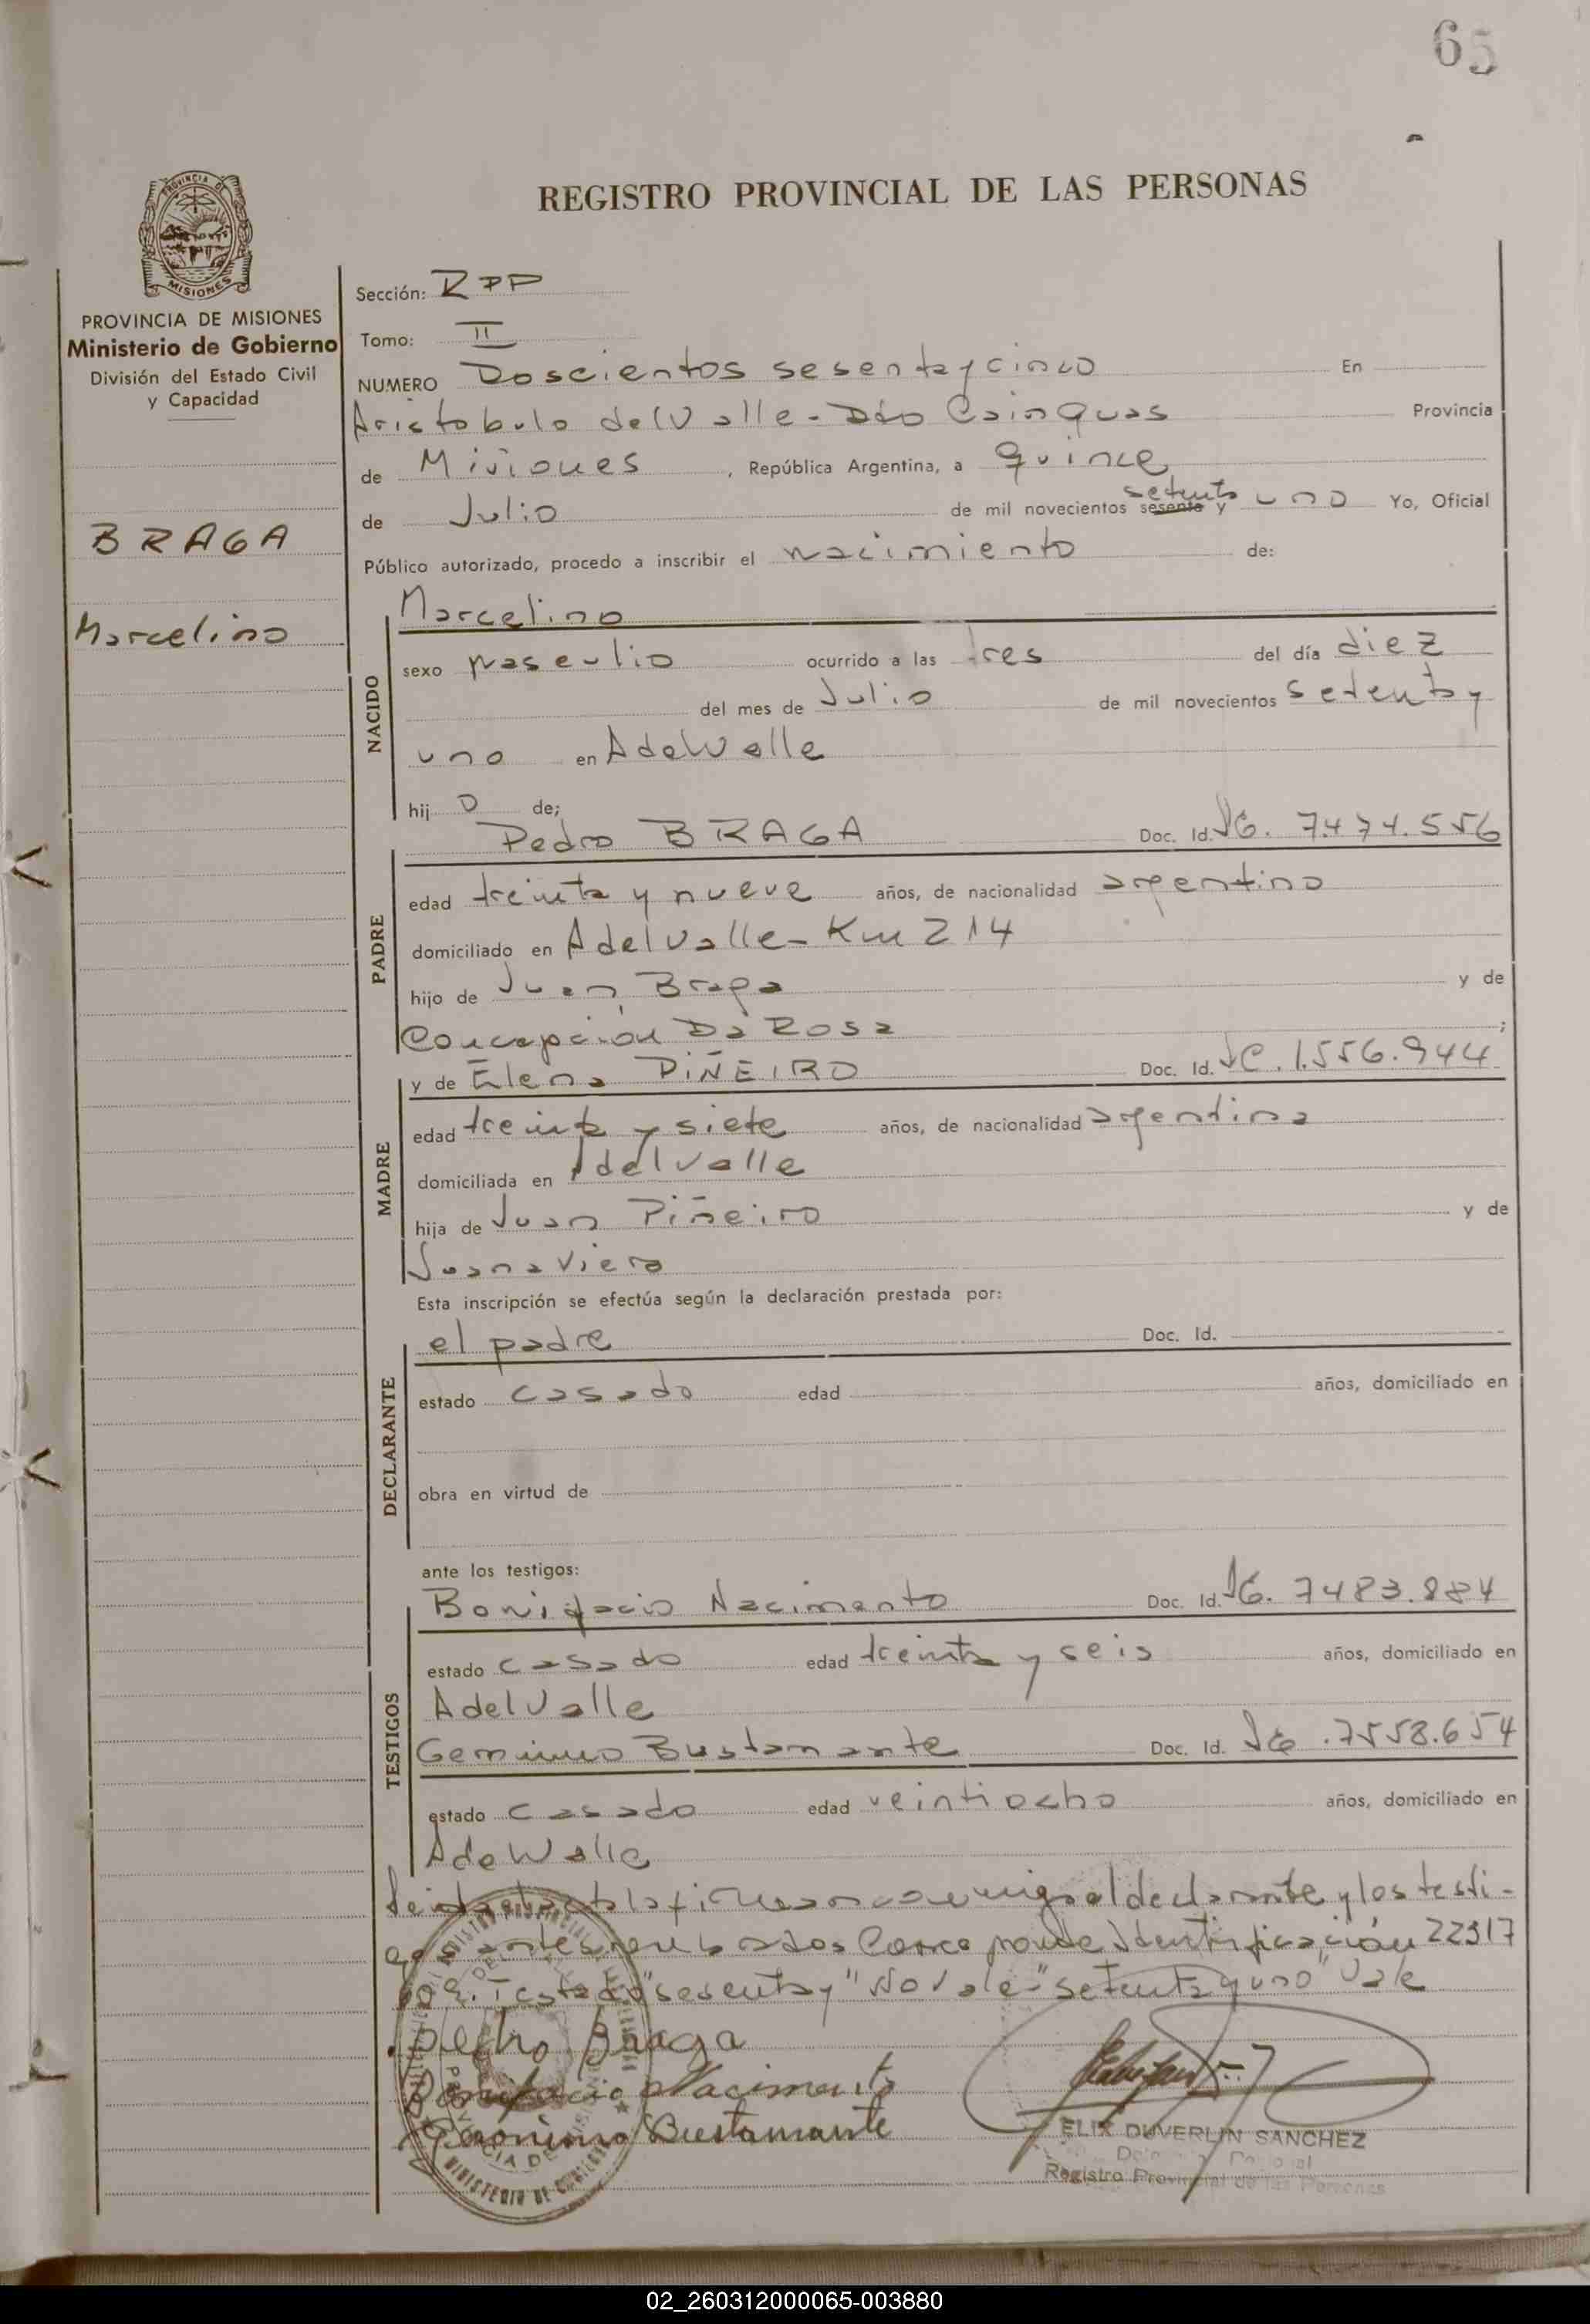 65
REGISTRO PROVINCIAL DE LAS PERSONAS
PROVINCIA DE MISIONES
Ministerio de Gobierno
División del Estado Civil
y Capacidad
BRAGA
Marcelino
Sección: RPP
Tomo: II
NUMERO Doscientos sesenta y cinco En
Aristobulo del Valle - Dto Cainguas Provincia
de Misiones, República Argentina, a quince
de Julio de mil novecientos sesenta y setenta uno Yo, Oficial
Público autorizado, procedo a inscribir el nacimiento de:
NACIDO
Marcelino
sexo masculio ocurrido a las tres del día diez
del mes de Julio de mil novecientos setenta y
uno en A del Valle
hij o de;
PADRE
Pedro BRAGA Doc. Id. 7.474.556
edad treinta y nueve años, de nacionalidad argentino
domiciliado en A del Valle - Km 214
hijo de Juan Braga y de
Concepción Da Rosa ;
MADRE
y de Elena PIÑEIRO Doc. Id. 1.556.944
edad treinta y siete años, de nacionalidad argentina
domiciliada en A del Valle
hija de Juan Piñeiro y de
Juana Viera
Esta inscripción se efectúa según la declaración prestada por:
DECLARANTE
el padre Doc. Id.
estado casado edad años, domiciliado en
obra en virtud de
ante los testigos:
TESTIGOS
Bonifacio Nacimento Doc. Id. 7483.884
estado casado edad treinta y seis años, domiciliado en
A del Valle
Bustamante Doc. Id. .7558.654
estado casado edad veintiocho años, domiciliado en
A del Valle
acta la firman conmigo el declarante y los testi-
gos antes nombrados Identificación 22317
Testado "sesenta y" No vale - "setenta y uno" Vale
Pedro Braga
Bonifacio Nacimento
Geronimo Bustamante
ELIX DUVERLIN SANCHEZ
Registro Provincial de las Personas
02_260312000065-003880